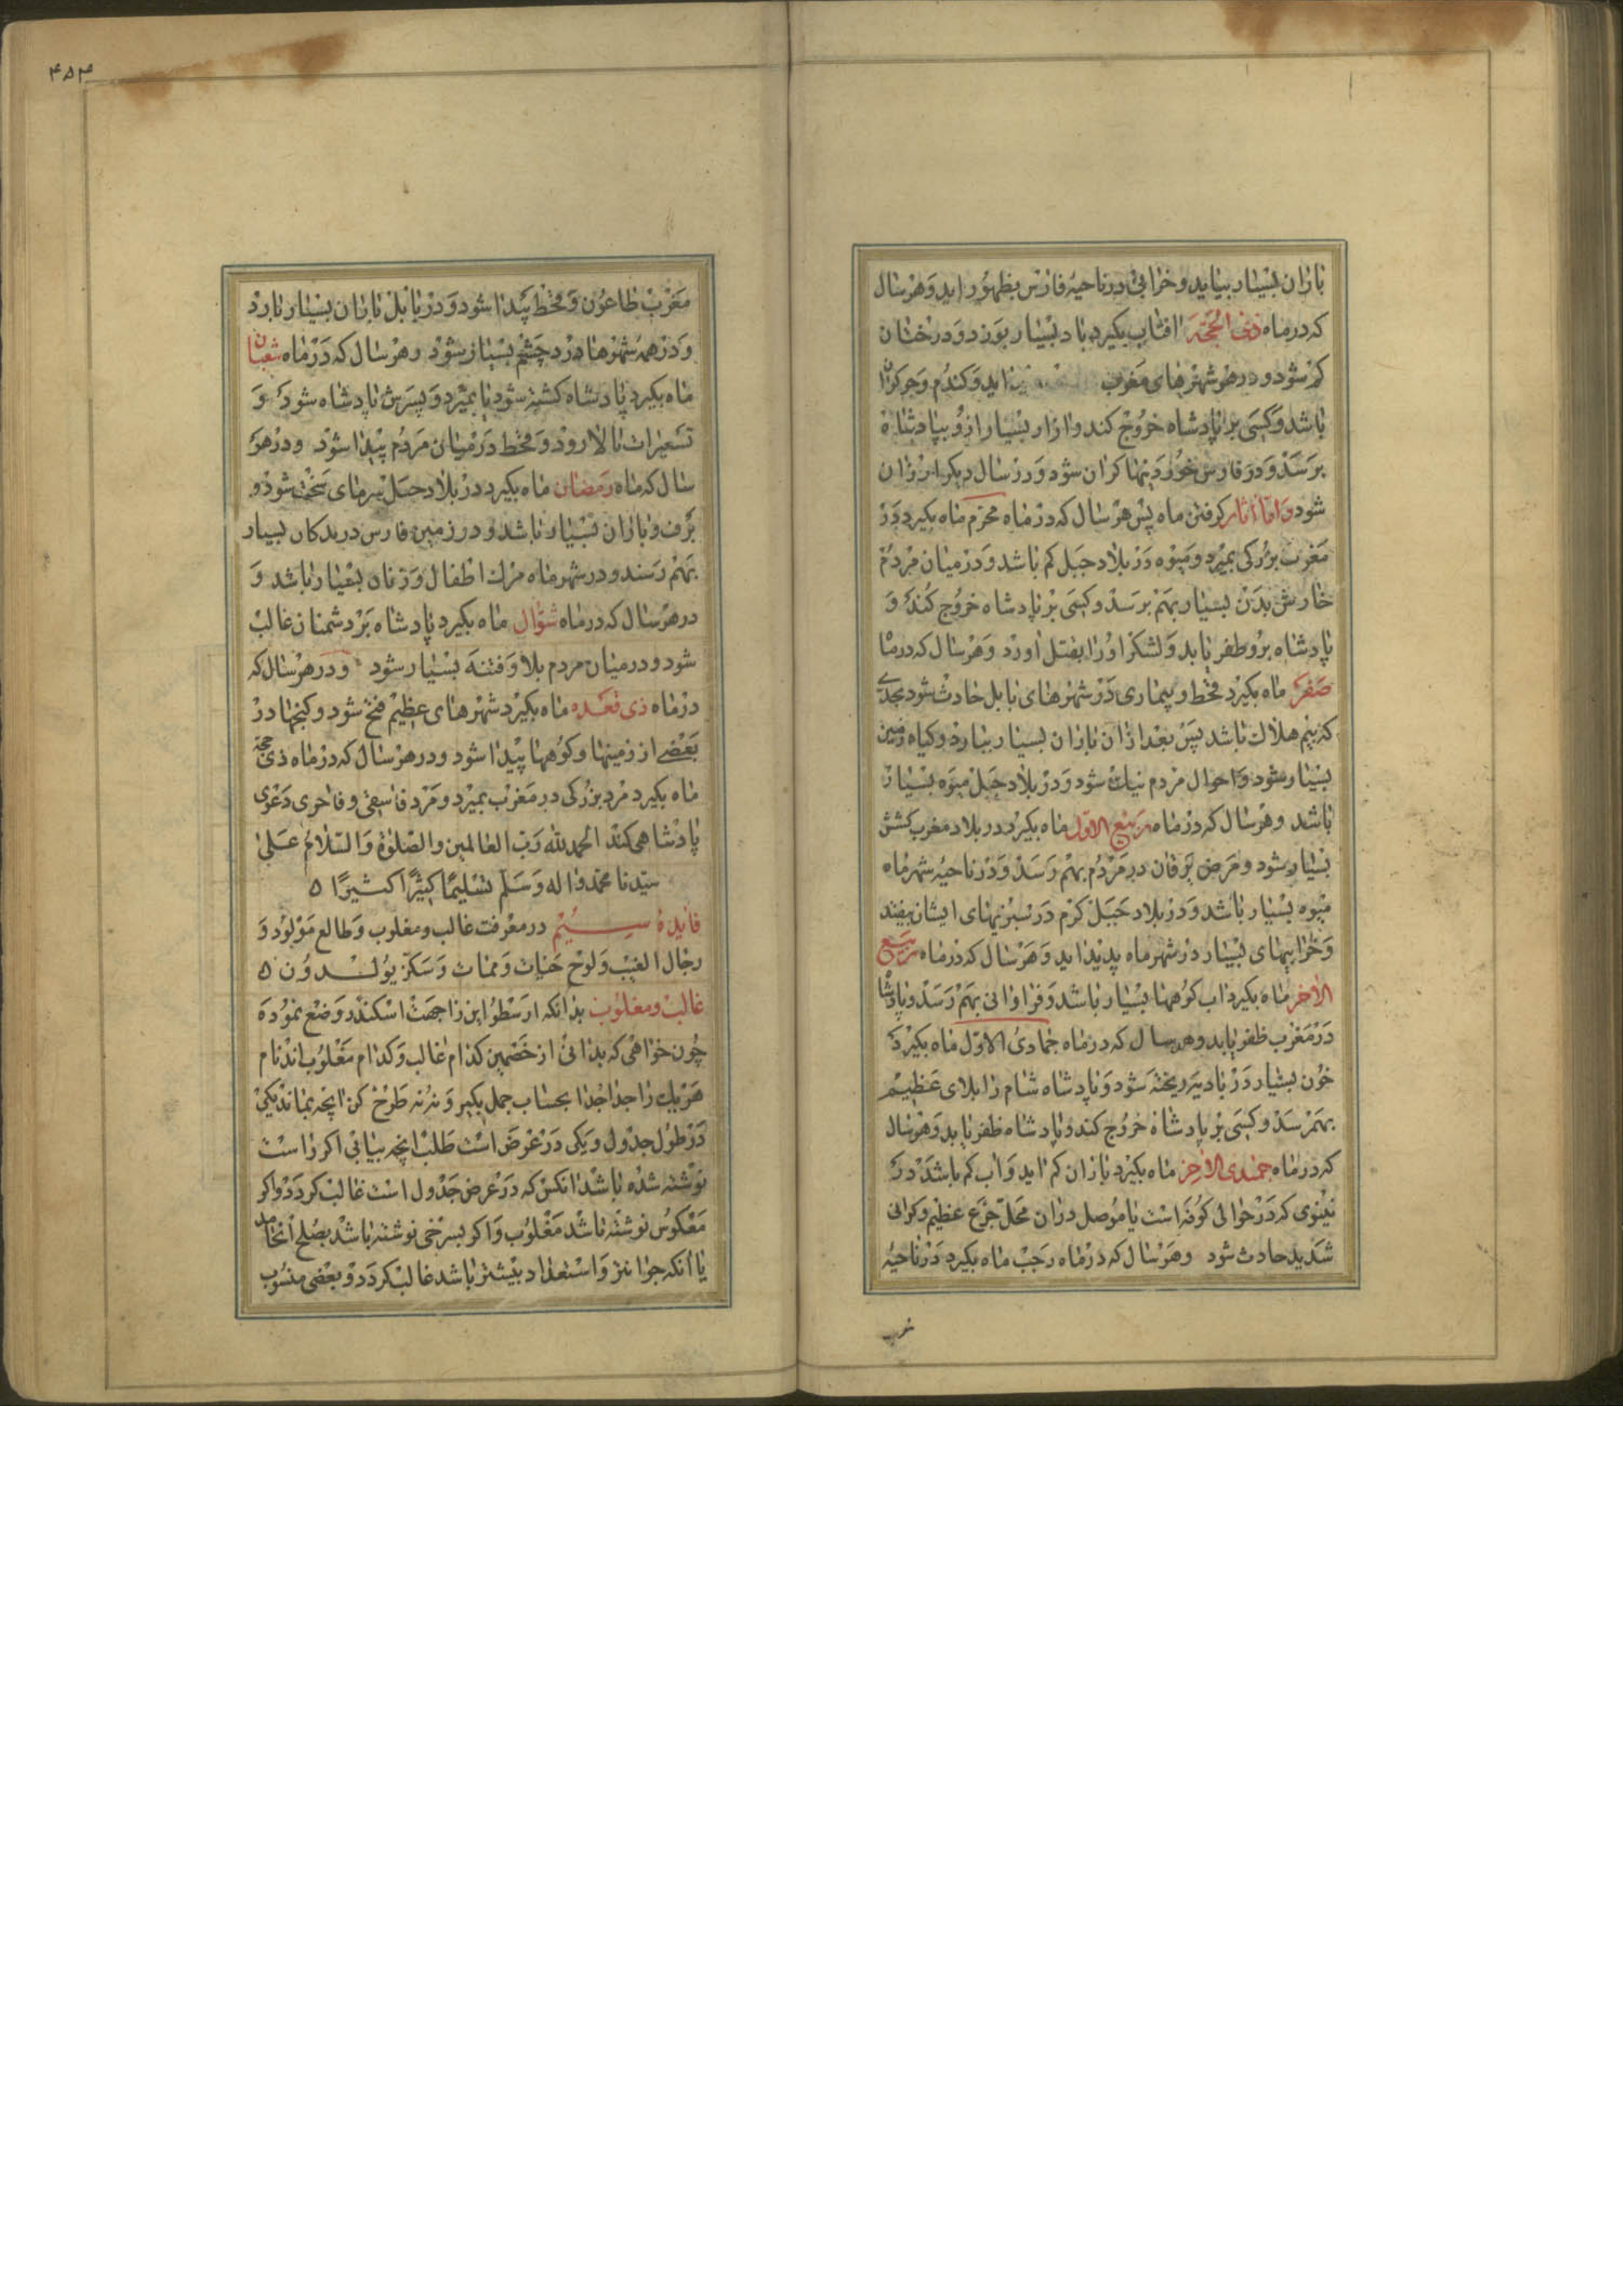 باران بسیار بیاید و خرابی در ناحیهٔ فارس بظهور اید و هر سال
که در ماه ذی الحجة افتاب بگیرد باد بسیار بوزد و درختان
کم شود و در شهرهای مغرب اید و کندم و جو کران
باشد و کسی بر پادشاه خروج کند و ازار بسیار از و بپادشاه
برسد و در فارس خوردنیها کران شود و در سال دیکر ارزان
شود و اما اثار کرفتن ماه پس هر سال که در ماه محرم ماه بکیرد در
مغرب بزرکی بمیرد و میوه در بلاد جبل کم باشد و در میان مردم
خارش بدن بسیار بهم برسد و کسی بر پادشاه خروج کند و
پادشاه برو ظفر یابد و لشکر او را بقتل اورد و هر سال که در ماه
صفر ماه بکیرد قحط و بیماری در شهرهای بابل حادث شود بحدی
که بیم هلاک باشد پس بعد از ان باران بسیار ببارد و کیاه زمین
بسیار شود و احوال مردم نیک شود و در بلاد جبل میوه بسیار
باشد و هر سال که در ماه ربیع الاول ماه بکیرد در بلاد مغرب کشش
بسیار شود و مرض یرقان در مردم بهم رسد و در ناحیهٔ شهر ماه
میوه بسیار باشد و در بلاد جبل کرم در سبزیهای ایشان بیفتد
و خرابیهای بسیار در شهر ماه پدید اید و هر سال که در ماه ربیع
الاخر ماه بکیرد اب کوهها بسیار باشد و فراوانی بهم رسد و پادشاه
در مغرب ظفر یابد و هر سال که در ماه جمادی الاول ماه بکیرد
خون بسیار در بادیه ریخته شود و پادشاه شام را بلای عظیم
بهم رسد و کسی بر پادشاه خروج کند و پادشاه ظفر یابد و هر سال
که در ماه جمادی الاخر ماه بکیرد باران کم اید و اب کم باشد در
نینوی که در حوالی کوفه است یا موصل در ان محل جزع عظیم و کرانی
شدید حادث شود و هر سال که در ماه رجب ماه بکیرد در ناحیهٔ
مغرب
۴۵۴
مغرب طاعون و قحط پیدا شود و در بابل باران بسیار بارد
و در همه شهرها درد چشم بسیار شود و هر سال که در ماه شعبان
ماه بکیرد پادشاه کشته شود یا بمیرد و پسرش پادشاه شود و
تسعیرات بالا رود و قحط در میان مردم پیدا شود و در هر
سال که ماه رمضان ماه بکیرد در بلاد جبل سرمای سخت شود و
برف و باران بسیار باشد و در زمین فارس درندکان بسیار
بهم رسند و در شهر ماه مرک اطفال و زنان بسیار باشد و
در هر سال که در ماه شوال ماه بکیرد پادشاه بر دشمنان غالب
شود و در میان مردم بلا و فتنه بسیار شود و در هر سال که
در ماه ذی قعده ماه بکیرد شهرهای عظیم فتح شود و کنجها در
بعضی از زمینها و کوهها پیدا شود و در هر سال که در ماه ذی حجه
ماه بکیرد مرد بزرکی در مغرب بمیرد و مرد فاسقی و فاجری دعوی
پادشاهی کند الحمد لله رب العالمین و الصلوة و السلام علی
سیدنا محمد و اله و سلم تسلیما کثیرا کثیرا ۵
فایدهٔ سیم در معرفت غالب و مغلوب و طالع مولود و
رجال الغیب و لوح حیات و ممات و سکز یولدون ۵
غالب و مغلوب بدانکه ارسطو این را جهت اسکندر وضع نموده
چون خواهی که بدانی از خصمین کدام غالب و کدام مغلوب اند نام
هر یک را جدا جدا بحساب جمل بکیر و نه نه طرح کن انچه بماند یکی
در طول جدول و یکی در عرض است طلب انچه بیابی اکر راست
نوشته شده باشد انکس که در عرض جدول است غالب کردد و اکر
معکوس نوشته باشد مغلوب و اکر بسرخی نوشته باشد بصلح انجامد
یا انکه جوانتر و استعداد بیشتر باشد غالب کردد و بعضی منسوب